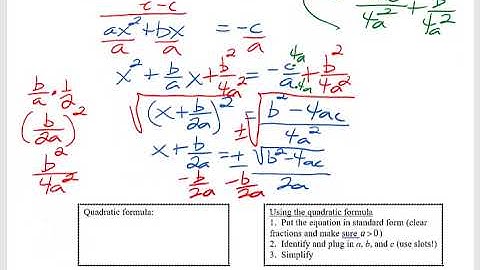 -c -c
ax²/a + bx/a = -c/a
/4a² + b²/4a²
x² + b/a x + b²/4a² = -c/a · 4a/4a + b²/4a²
b/a · 1/2
(b/2a)²
b²/4a²
√(x + b/2a)² = ±√(b² - 4ac)/4a²
x + b/2a = ± √b² - 4ac / 2a
- b/2a - b/2a
Quadratic formula:
Using the quadratic formula
1. Put the equation in standard form (clear
fractions and make sure a > 0)
2. Identify and plug in a, b, and c (use slots!)
3. Simplify